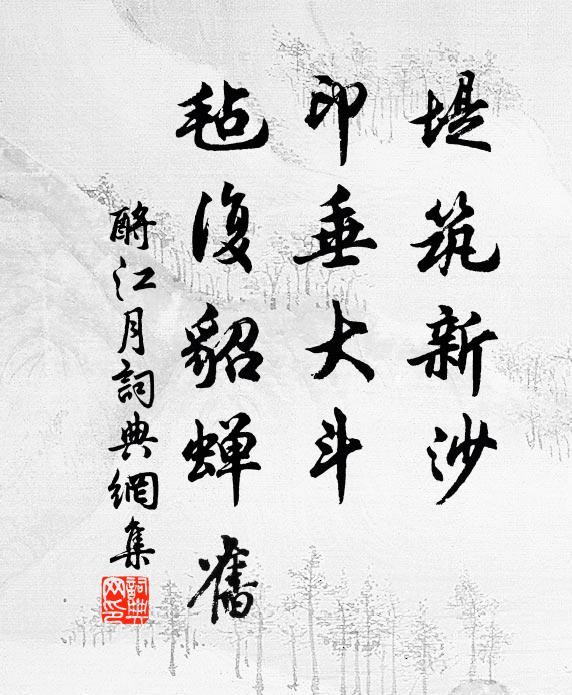 堤筑新沙
印垂大斗
毡復貂蝉舊
酹江月詞典網集
詞典
网印